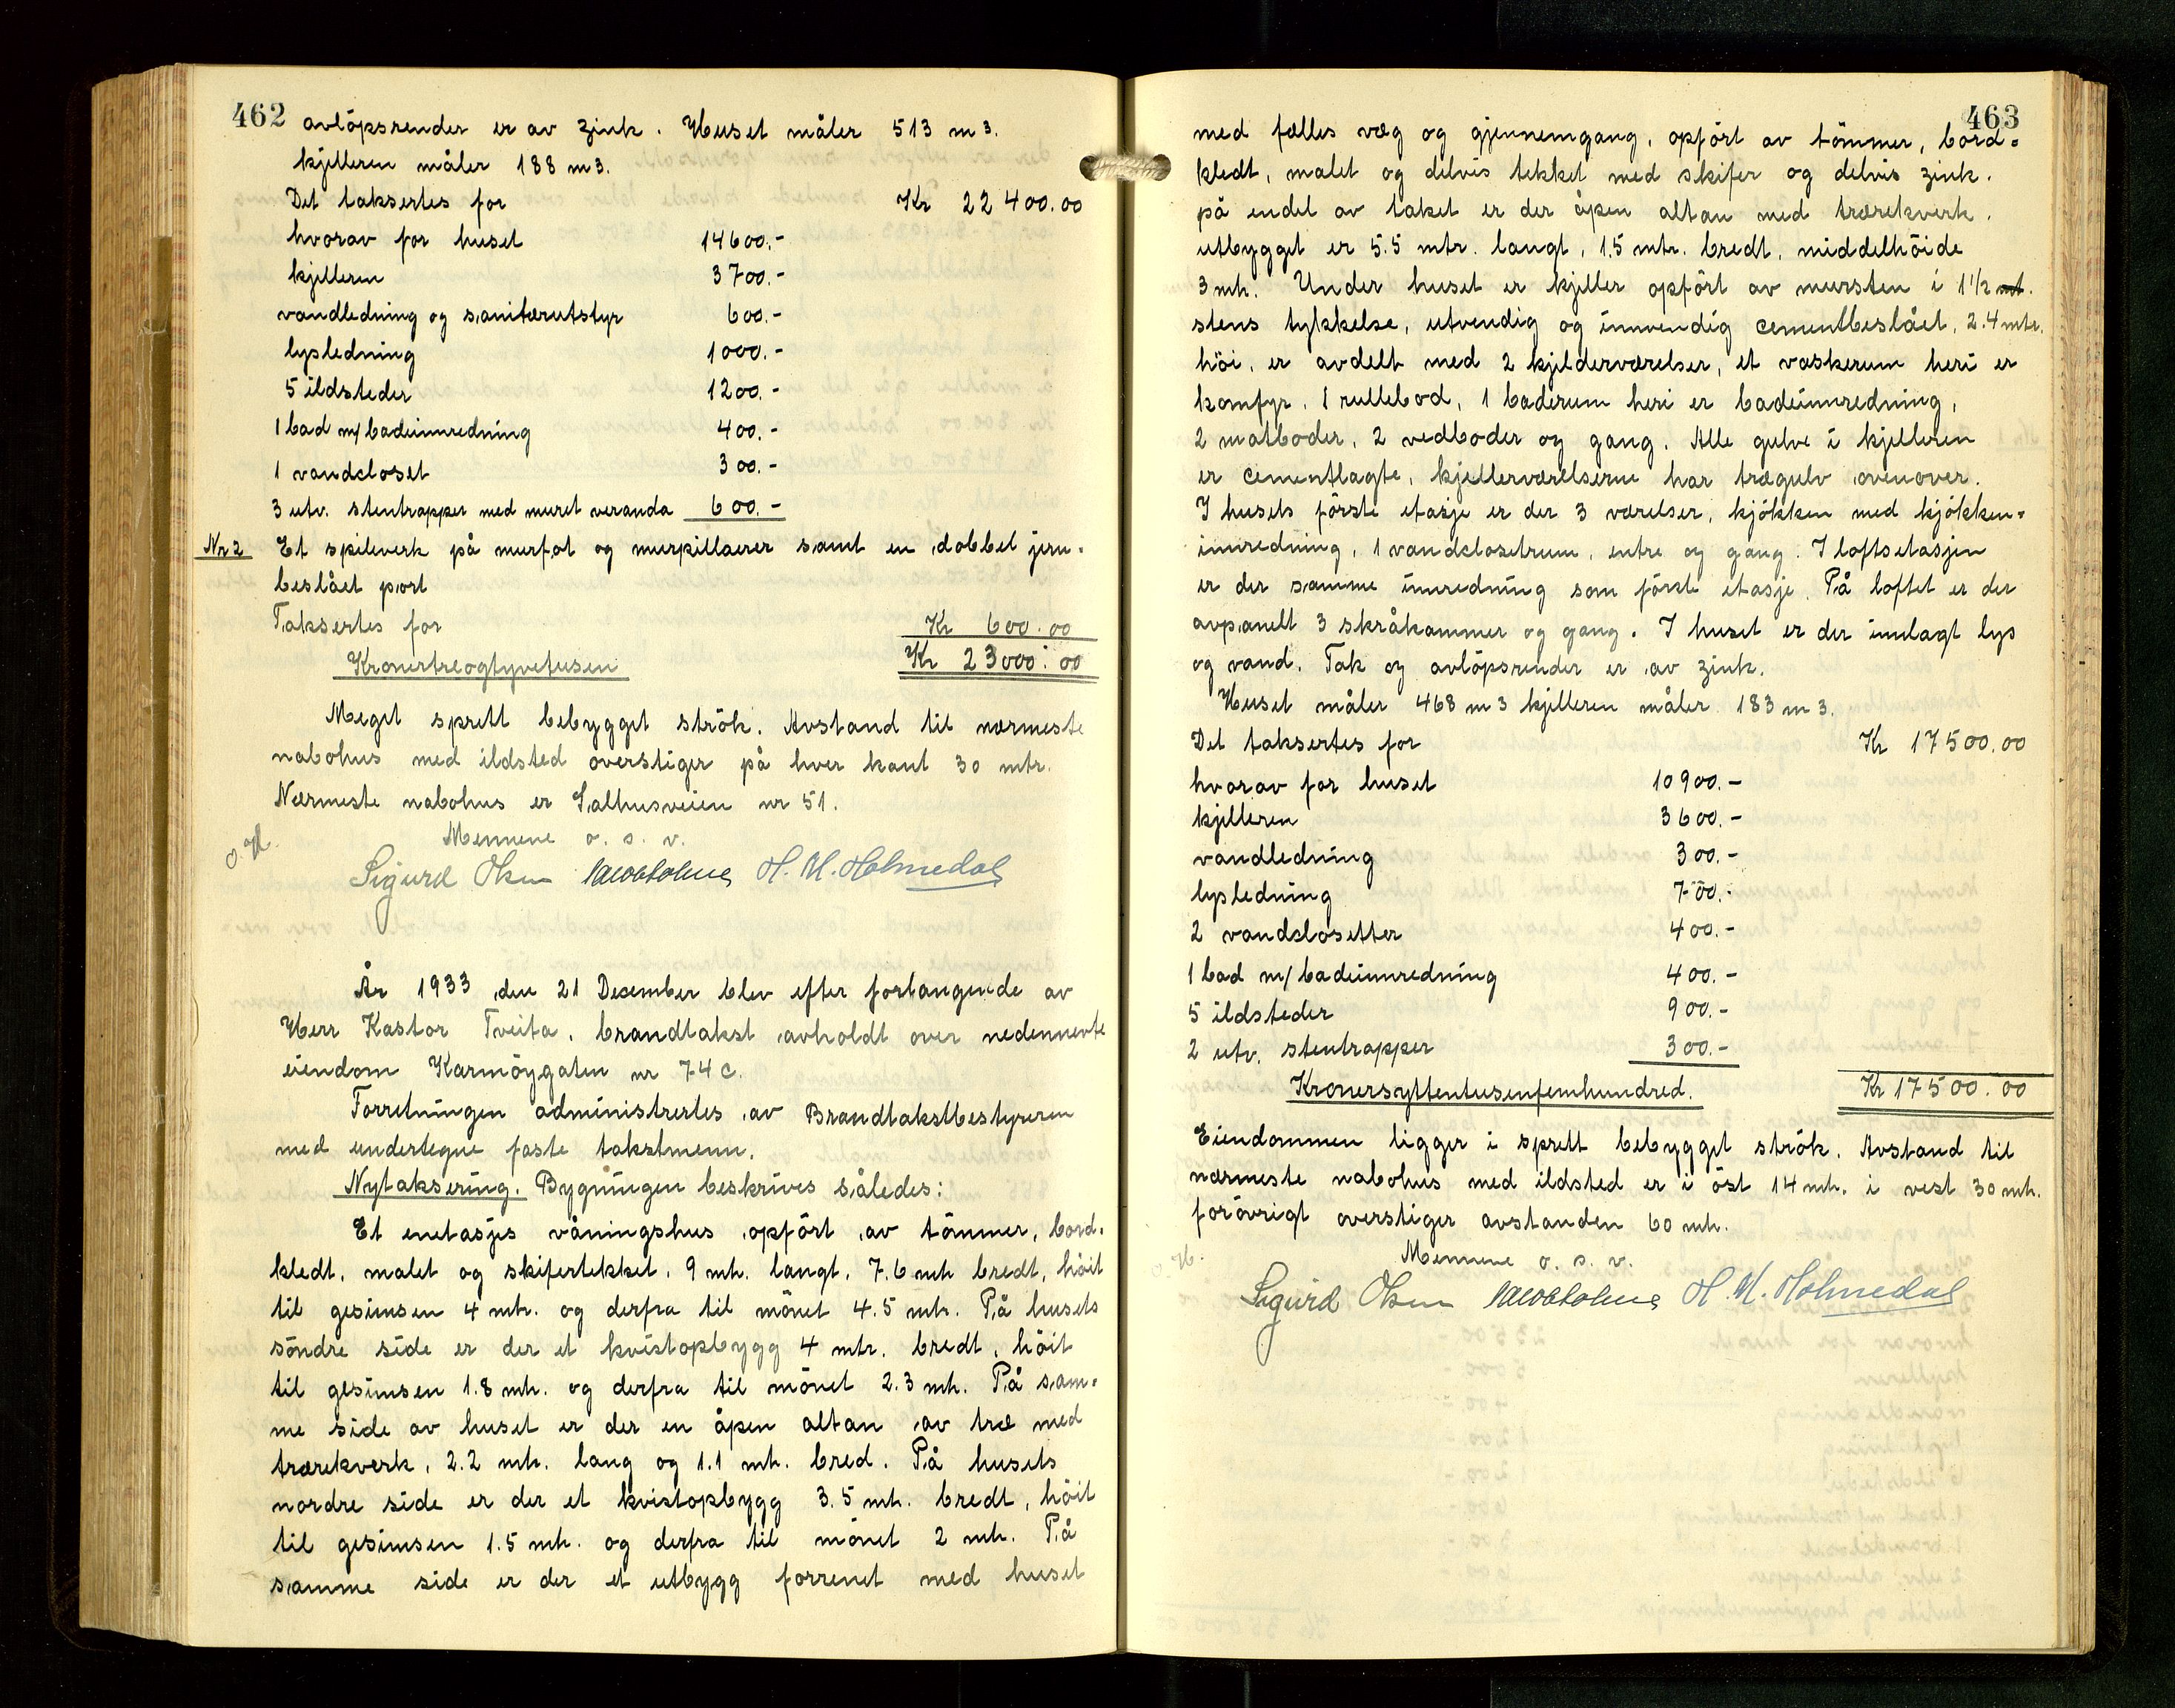 462
avlöpsrender er av zink. Huset måler 513 m3.
kjelleren måler 188 m3.
Det taksertes for Kr 22400.00
hvorav for huset 14600.-
kjelleren 3700.-
vandledning og sanitærutstyr 600.-
lysledning 1000.-
5 ildsteder 1200.-
1 bad m/ badeinnredning 400.-
1 vandcloset 300.-
3 utv. stentrapper med muret veranda 600.-
Nr 2 Et spileverk på murfot og murpillaerer samt en dobbel jern-
beslået port
Taksertes for Kr 600.00
Kronertreogtyvetusen Kr 23000.00
Meget sprett bebygget strök. Avstand til nærmeste
nabohus med ildsted overstiger på hver kant 30 mtr.
Nærmeste nabohus er Salhusveien nr 51.
Mennene o. s. v.
Sigurd Olsen H. M. Holmedal
År 1933 den 21 Desember blev efter forlangende av
Herr Kastor Tveita, brandtakst avholdt over nedennevte
eiendom Karmöygaten nr 74 c.
Forretningen administrertes av Brandtakstbestyreren
med undertegne faste takstmenn.
Nytaksering. Bygningen beskrives således:
Et enetasjes våningshus opfört av tömmer, bord-
kledt, malet og skifertekket, 9 mtr. langt, 7.6 mtr bredt, höit
til gesimsen 4 mtr. og derfra til mönet 4.5 mtr. På husets
söndre side er der et kvistopbygg 4 mtr. bredt, höit
til gesimsen 1.8 mtr. og derfra til mönet 2.3 mtr. På sam-
me side av huset er der en åpen altan av træ med
trærekverk, 2.2 mtr. lang og 1.1 mtr. bred. På husets
nordre side er der et kvistopbygg 3.5 mtr. bredt, höit
til gesimsen 1.5 mtr. og derfra til mönet 2 mtr. På
samme side er der et utbygg forrenet med huset
463
med felles væg og gjennemgang, opfört av tömmer, bord-
kledt, malet og delvis tekket med skifer og delvis zink.
på endel av taket er der åpen altan med trærekverk.
utbygget er 5.5 mtr. langt, 1.5 mtr. bredt, middelhöide
3 mtr. Under huset er kjeller opfört av mursten i 1 1/2
stens tykkelse, utvendig og innvendig cementbeslået, 2.4 mtr.
höi, er avdelt med 2 kjelderværelser, et vaskerum heri er
komfyr, 1 rullebod, 1 baderum heri er badeinnredning,
2 matboder, 2 vedboder og gang. Alle gulve i kjelleren
er cementlagte, kjellerværelserne har trægulv ovenover.
I husets förste etasje er der 3 værelser, kjökken med kjökken-
innredning, 1 vandclosetrum, entre og gang. I loftsetasjen
er der samme innredning som förste etasje. På loftet er der
avpanelt 3 skråkammer og gang. I huset er der innlagt lys
og vand. Tak og avlöpsrender er av zink.
Huset måler 468 m3 kjelleren måler 183 m3.
Det taksertes for Kr 17500.00
hvorav for huset 10900.-
kjelleren 3600.-
vandledning 300.-
lysledning 700.-
2 vandclosetter 400.-
1 bad m/ badeinnredning 400.-
5 ildsteder 900.-
2 utv. stentrapper 300.-
Kronersyttentusenfemhundred. Kr 17500.00
Eiendommen ligger i sprett bebygget strök. Avstand til
nærmeste nabohus med ildsted er i öst 14 mtr. i vest 30 mtr.
forövrigt overstiger avstanden 60 mtr.
Mennene o. s. v.
Sigurd Olsen H. M. Holmedal